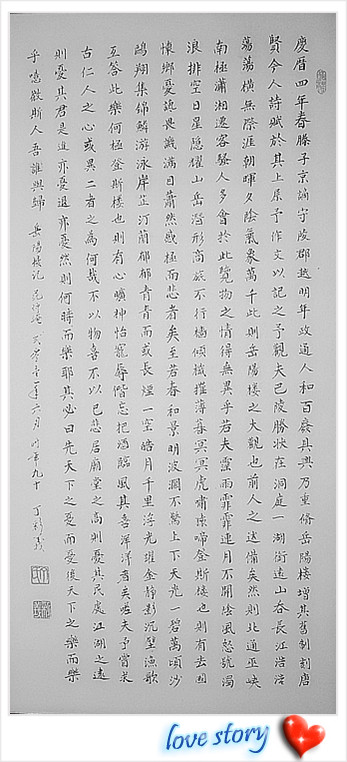 慶曆四年春滕子京謫守陵郡越明年政通人和百廢具興乃重脩岳陽樓增其舊制刻唐
賢今人詩賦於其上屬予作文以記之予觀夫巴陵勝狀在洞庭一湖銜遠山吞長江浩浩
蕩蕩橫無際涯朝暉夕陰氣象萬千此則岳陽樓之大觀也前人之述備矣然則北通巫峽
南極瀟湘遷客騷人多會於此覽物之情得無異乎若夫霪雨霏霏連月不開陰風怒號濁
浪排空日星隱耀山岳潛形商旅不行檣傾楫摧薄暮冥冥虎嘯猿啼登斯樓也則有去國
懷鄉憂讒畏譏滿目蕭然感極而悲者矣至若春和景明波瀾不驚上下天光一碧萬頃沙
鷗翔集錦鱗游泳岸芷汀蘭郁郁青青而或長煙一空皓月千里浮光躍金靜影沉璧漁歌
互答此樂何極登斯樓也則有心曠神怡寵辱偕忘把酒臨風其喜洋洋者矣嗟夫予嘗求
古仁人之心或異二者之為何哉不以物喜不以己悲居廟堂之高則憂其民處江湖之遠
則憂其君是進亦憂退亦憂然則何時而樂耶其必曰先天下之憂而憂後天下之樂而樂
乎噫微斯人吾誰與歸 岳陽樓記 范仲淹 六月 時年九十
love story